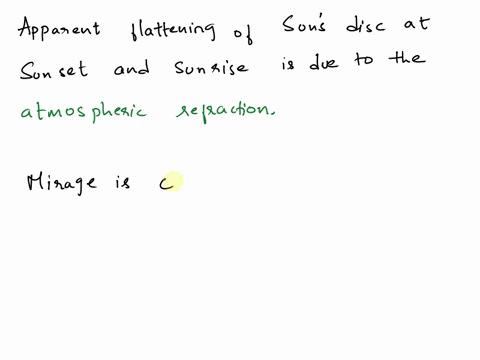 Apparent flattening of Sun's disc at
Sunset and sunrise is due to the
atmospheric refraction.
Mirage is c